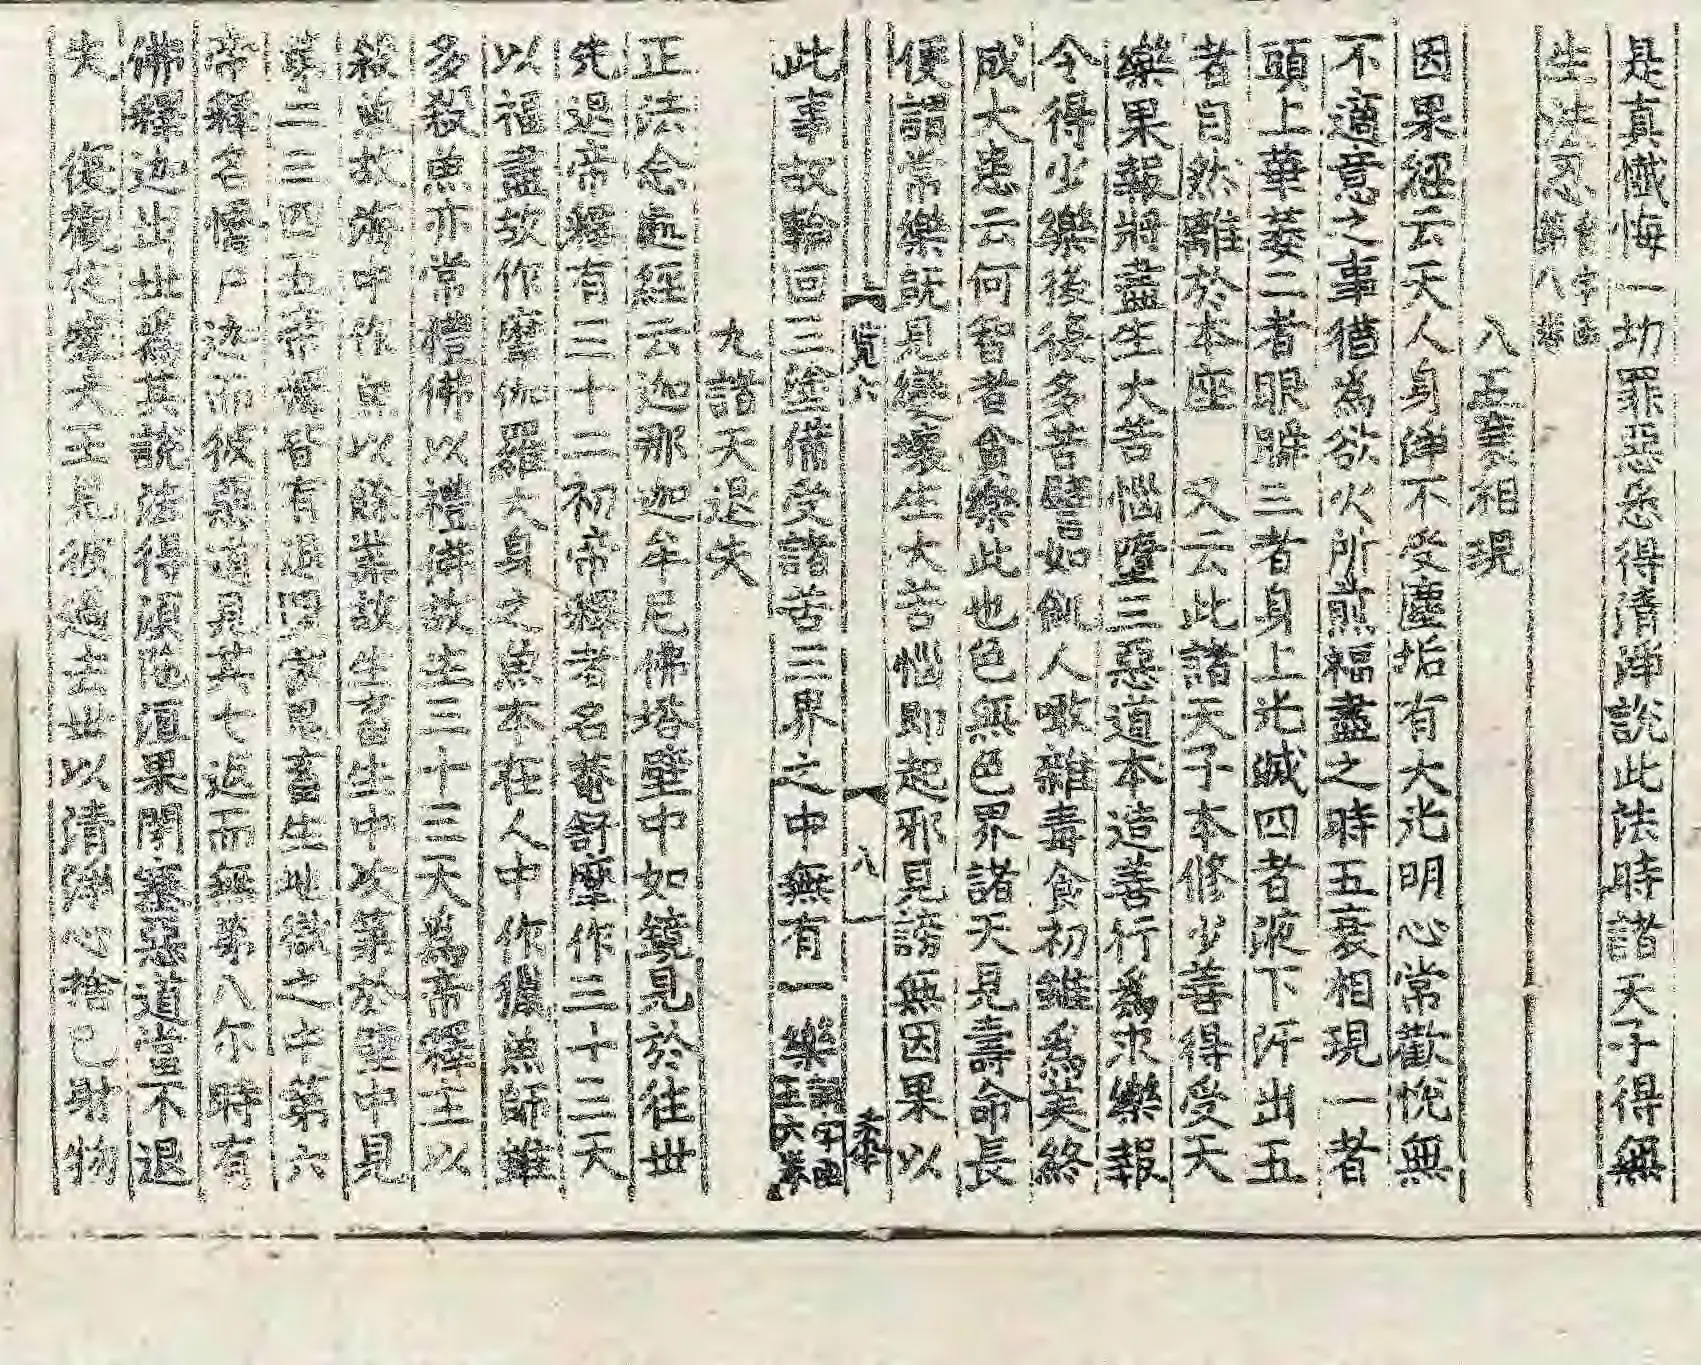 是真懺悔一切罪惡悉得清淨說此法時諸天子得無
生法忍
第八卷
八五衰相現
因果經云天人身淨不受塵垢有大光明心常歡悅無
不適意之事猶為欲火所煎福盡之時五衰相現一者
頭上華萎二者眼瞬三者身上光滅四者液下汗出五
者自然離於本座　又云此諸天子本修少善得受天
樂果報將盡生大苦惱墮三惡道本造善行為求樂報
今得少樂後復多苦譬如飢人噉雜毒食初雖為美終
成大患云何智者貪樂此也色無色界諸天見壽命長
便謂常樂既見變壞生大苦惱即起邪見謗無因果以
覽六
八
此事故輪回三塗備受諸苦三界之中無有一樂
九諸天退失
正法念處經云迦那迦牟尼佛塔壁中如鏡見於往世
先退帝釋有三十二初帝釋者名菴舒摩作三十三天
以福盡故作摩伽羅大身之魚本在人中作獵魚師雖
多殺魚亦常禮佛以禮佛故生三十三天為帝釋主以
殺魚故海中作魚以餘業故生畜生中次第於壁中見
第二三四五帝釋皆有退沒蒙思畜生地獄之中第六
帝釋名憍尸迦而彼惡道見其七返而無第八尒時有
佛釋迦出世為其說法得須陀洹果閉塞惡道當不退
失　復觀花鬘天王見彼過去世以清淨心捨己財物